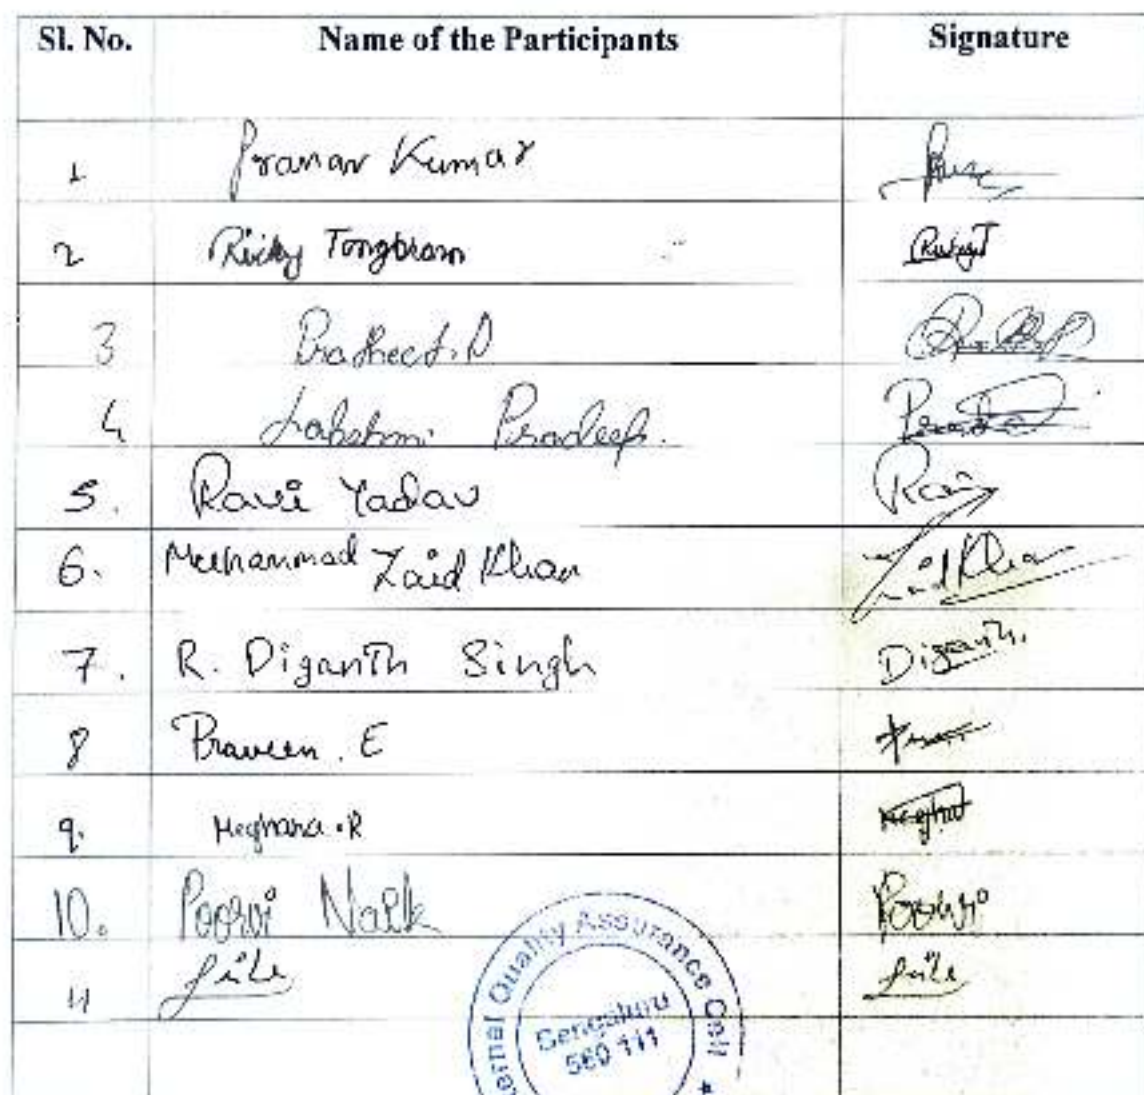 Sl. No. Name of the Participants Signature
1 Pranav Kumar
2 Ricky Tongbram RickyT
3
4 Lakshmi Pradeep.
5. Ravi Yadav Ravi
6. Muhammad Zaid Khan Zaid Khan
7. R. Diganth Singh Diganth.
8 Praveen. E
9. Meghana.R Megha
10. Poorvi Naik Poorvi
11
ternal Quality Assurance Cell ★
Bengaluru
560 111